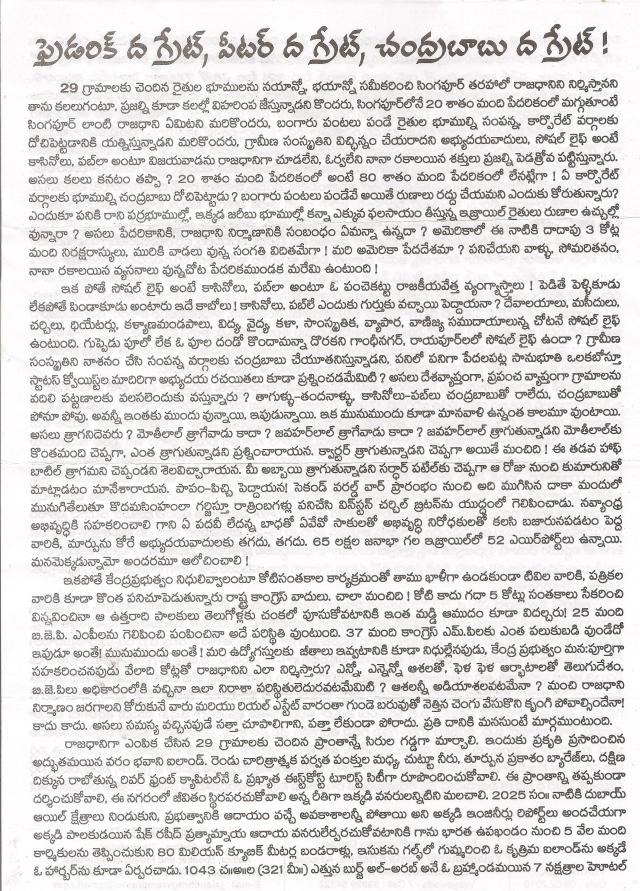 ఫ్రెడరిక్ ద గ్రేట్, పీటర్ ద గ్రేట్, చంద్రబాబు ద గ్రేట్ !
29 గ్రామాలకు చెందిన రైతుల భూములను నయాన్నో, భయాన్నో సమీకరించి సింగపూర్ తరహాలో రాజధానిని నిర్మిస్తానని
తాను కలలుగంటూ, ప్రజల్ని కూడా కలల్లో విహరింప జేస్తున్నాడని కొందరు, సింగపూర్‌లోనే 20 శాతం మంది పేదరికంలో మగ్గుతూంటే
సింగపూర్ లాంటి రాజధాని ఏమిటని మరికొందరు, బంగారు పంటలు పండే రైతుల భూముల్ని సంపన్న, కార్పొరేట్ వర్గాలకు
దోచిపెట్టడానికి యత్నిస్తున్నాడని మరికొందరు, గ్రామీణ సంస్కృతిని విచ్ఛిన్నం చేయరాదని అభ్యుదయవాదులు, సోషల్ లైఫ్ అంటే
కాసినోలు, పబ్‌లా అంటూ విజయవాడను రాజధానిగా చూడలేని, ఓర్వలేని నానా రకాలయిన శక్తులు ప్రజల్ని పెడత్రోవ పట్టిస్తున్నారు.
అసలు కలలు కనటం తప్పా ? 20 శాతం మంది పేదరికంలో అంటే 80 శాతం మంది పేదరికంలో లేనట్లేగా ! ఏ కార్పొరేట్
వర్గాలకు భూముల్ని చంద్రబాబు దోచిపెట్టాడు ? బంగారు పంటలు పండేవే అయితే రుణాలు రద్దు చేయమని ఎందుకు కోరుతున్నారు?
ఎందుకూ పనికి రాని పర్రభూముల్లో, ఇక్కడ జరీబు భూముల్లో కన్నా ఎక్కువ ఫలసాయం తీస్తున్న ఇజ్రాయిల్ రైతులు రుణాల ఉచ్చుల్లో
వున్నారా ? అసలు పేదరికానికి, రాజధాని నిర్మాణానికి సంబంధం ఏమన్నా ఉన్నదా ? అమెరికాలో ఈ నాటికి దాదాపు 3 కోట్ల
మంది నిరక్షరాస్యులు, మురికి వాడలు వున్న సంగతి విదితమేగా ! మరి అమెరికా పేదదేశమా ? పనిచేయని వాళ్ళు, సోమరితనం,
నానా రకాలయిన వ్యసనాలు వున్నచోట పేదరికముండక మరేమి ఉంటుంది !
ఇక పోతే సోషల్ లైఫ్ అంటే కాసినోలు, పబ్‌లా అంటూ ఓ పంచెకట్టు రాజకీయవేత్త వ్యంగ్యాస్త్రాలు ! పెడితే పెళ్ళికూడు
లేకపోతే పిండాకూడు అంటారు ఇదే కాబోలు ! కాసినోలు, పబ్‌లే ఎందుకు గుర్తుకు వచ్చాయి పెద్దాయనా ? దేవాలయాలు, మసీదులు,
చర్చిలు, థియేటర్లు, కళ్యాణమండపాలు, విద్య, వైద్య, కళా, సాంస్కృతిక, వ్యాపార, వాణిజ్య సముదాయాలున్న చోటనే సోషల్ లైఫ్
ఉంటుంది. గుప్పెడు పూలో లేక ఓ పూల దండో కొందామన్నా దొరకని గాంధీనగర్, రాయపూర్‌లలో సోషల్ లైఫ్ ఉందా ? గ్రామీణ
సంస్కృతిని నాశనం చేసి సంపన్న వర్గాలకు చంద్రబాబు చేయూతనిస్తున్నాడని, పనిలో పనిగా పేదలపట్ల సానుభూతి ఒలకబోస్తూ
స్టాటస్ క్వోయిస్ట్‌ల మాదిరిగా అభ్యుదయ రచయితలు కూడా ప్రశ్నించడమేమిటి ? అసలు దేశవ్యాప్తంగా, ప్రపంచ వ్యాప్తంగా గ్రామాలను
వదిలి పట్టణాలకు వలసలెందుకు వస్తున్నారు ? తాగుళ్ళు-తందనాళ్ళు, కాసినోలు-పబ్‌లు చంద్రబాబుతో రాలేదు, చంద్రబాబుతో
పోనూ పోవు. అవన్నీ ఇంతకు ముందు వున్నాయి, ఇపుడున్నాయి. ఇక మునుముందు కూడా మానవాళి ఉన్నంత కాలమూ వుంటాయి.
అసలు త్రాగనిదెవరు ? మోతీలాల్ త్రాగేవాడు కాదా ? జవహర్‌లాల్ త్రాగేవాడు కాదా ? జవహర్‌లాల్ త్రాగుతున్నాడని మోతీలాల్‌కు
కొంతమంది చెప్పగా, ఎంత త్రాగుతున్నాడని ప్రశ్నించారాయన. క్వార్టర్ త్రాగుతున్నాడని చెప్పగా అయితే మంచిది ! ఈ తడవ హాఫ్
బాటిల్ త్రాగమని చెప్పండని శెలవిచ్చారాయన. మీ అబ్బాయి త్రాగుతున్నాడని సర్దార్ పటేల్‌కు చెప్పగా ఆ రోజు నుంచి కుమారునితో
మాట్లాడటం మానేశారాయన. పాపం-పిచ్చి పెద్దాయన! సెకండ్ వరల్డ్ వార్ ప్రారంభం నుంచి అది ముగిసిన దాకా మందులో
మునుగితేలుతూ కొదమసింహంలా గర్జిస్తూ రాత్రింబగళ్లు పనిచేసి విన్‌స్టన్ చర్చిల్ బ్రిటన్‌ను యుద్ధంలో గెలిపించాడు. నవ్యాంధ్ర
అభివృద్ధికి సహకరించాలి గాని ఏ పదవీ లేదన్న బాధతో ఏవేవో సాకులతో అభివృద్ధి నిరోధకులతో కలసి బజారునపడటం పెద్ద
వారికి, మార్పును కోరే అభ్యుదయవాదులకు తగదు, తగదు. 65 లక్షల జనాభా గల ఇజ్రాయిల్‌లో 52 ఎయిర్‌పోర్ట్‌లు ఉన్నాయి.
మనమెక్కడున్నామో అందరమూ ఆలోచించాలి !
ఇకపోతే కేంద్రప్రభుత్వం నిధులివ్వాలంటూ కోటిసంతకాల కార్యక్రమంతో తాము ఖాళీగా ఉండకుండా టివిల వారికి, పత్రికల
వారికి కూడా కొంత పనిచూపెడుతున్నారు రాష్ట్ర కాంగ్రెస్ వాదులు. చాలా మంచిది ! కోటి కాదు గదా 5 కోట్లు సంతకాలు సేకరించి
విన్నవించినా ఆ ఉత్తరాది పాలకులు తెలుగోళ్లకు చంకలో పూసుకోవటానికి ఇంత మడ్డి ఆముదం కూడా విదల్చరు! 25 మంది
బి.జె.పి. ఎంపీలను గెలిపించి పంపించినా అదే పరిస్థితి వుంటుంది. 37 మంది కాంగ్రెస్ ఎమ్.పిలకు ఎంత పలుకుబడి వుండేదో
ఇపుడూ అంతే! మునుముందు అంతే ! మరి ఉద్యోగస్తులకు జీతాలు ఇవ్వటానికి కూడా నిధుల్లేనపుడు, కేంద్ర ప్రభుత్వం మనఃపూర్తిగా
సహకరించనపుడు వేలాది కోట్లతో రాజధానిని ఎలా నిర్మిస్తారు? ఎన్నో, ఎన్నెన్నో ఆశలతో, ఫెళ ఫెళ ఆర్భాటాలతో తెలుగుదేశం,
బి.జె.పిలు అధికారంలోకి వచ్చినా ఇలా నిరాశా పరిస్థితులెదురవటమేమిటి ? ఆశలన్నీ అడియాశలవటమేనా ? మంచి రాజధాని
నిర్మాణం జరగాలని కోరుకునే వారు మరియు రియల్ ఎస్టేట్ వారంతా గుండె బరువుతో నెత్తిన చెంగు వేసుకొని కృంగి పోవాల్సిందేనా!
కాదు కాదు. అసలు సమస్య వచ్చినపుడే సత్తా చూపాలిగాని, పత్తా లేకుండా పోరాదు. ప్రతి దానికి మనసుంటే మార్గముంటుంది.
రాజధానిగా ఎంపిక చేసిన 29 గ్రామాలకు చెందిన ప్రాంతాన్నే సిరుల గడ్డగా మార్చాలి. ఇందుకు ప్రకృతి ప్రసాదించిన
అద్భుతమయిన వరం భవాని ఐలాండ్. రెండు చారిత్రాత్మక పర్వత పంక్తుల మధ్య, చుట్టూ నీరు, తూర్పున ప్రకాశం బ్యారేజ్‌లు, దక్షిణ
దిక్కున రాబోతున్న రివర్ ఫ్రంట్ క్యాపిటల్‌నే ఓ ప్రఖ్యాత ఈస్ట్‌కోస్ట్ టూరిస్ట్ సిటీగా రూపొందించుకోవాలి. ఈ ప్రాంతాన్ని తప్పకుండా
దర్శించుకోవాలి, ఈ నగరంలో జీవితం స్థిరపరచుకోవాలి అన్న రీతిగా ఇక్కడి వనరులన్నిటిని మలచాలి. 2025 సం॥ నాటికి దుబాయ్
ఆయిల్ క్షేత్రాలు నిండుకుని, ప్రభుత్వానికి ఆదాయం వచ్చే అవకాశాలన్నీ పోతాయి అని అక్కడి ఇంజనీర్లు రిపోర్ట్‌లు అందచేయగా
అక్కడి పాలకుడయిన షేక్ రషీద్ ప్రత్యామ్నాయ ఆదాయ వనరులేర్పరచుకోవటానికి గాను భారత ఉపఖండం నుంచి 5 వేల మంది
కార్మికులను తెప్పించుకుని 80 మిలియన్ క్యూబిక్ మీటర్ల బండరాళ్ళు, ఇసుకను గల్ఫ్‌లో గుమ్మరించి ఓ కృత్రిమ ఐలాండ్‌ను అక్కడే
ఓ హార్బర్‌ను కూడా ఏర్పరచాడు. 1043 చ॥అ॥ల (321 మీ॥) ఎత్తున బుర్జ్ అల్-అరబ్ అనే ఓ బ్రహ్మాండమయిన 7 నక్షత్రాల హెూటల్